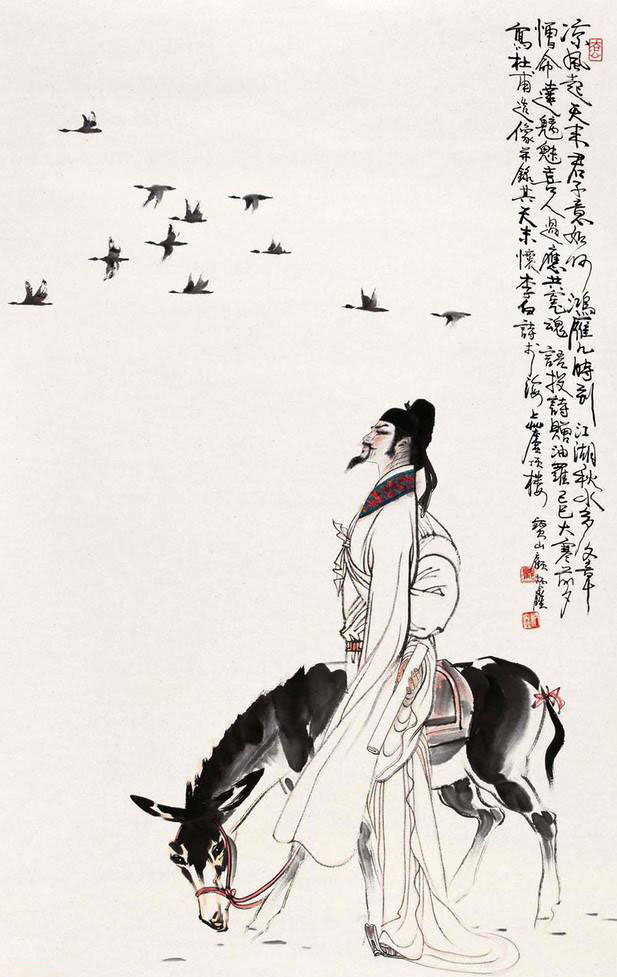 凉風起天末君子意如何鴻雁几時到江湖秋水多文章
憎命達魑魅喜人過應共冤魂語投詩贈汨羅己巳大寒前夕
寫杜甫造像并錄其天末懷李白詩於海上廬頂樓寶山顧炳鑫